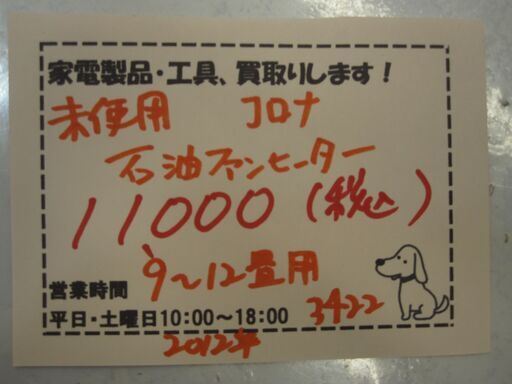 家電製品・工具、買取りします！
未使用 コロナ
石油ファンヒーター
11000（税込）
9〜12畳用
営業時間
平日・土曜日10:00〜18:00
3422
2012年